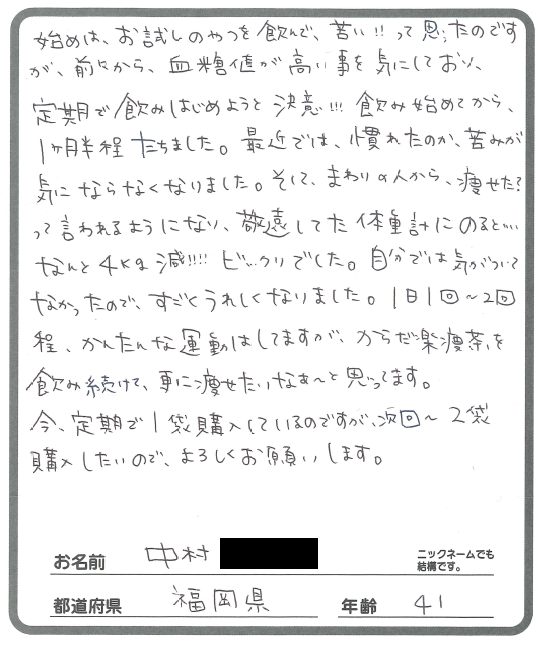 始めは、お試しのやつを飲んで、苦い!!って思ったのです
が、前々から、血糖値が高い事を気にしており、
定期で飲みはじめようと決意!!! 飲み始めてから、
1ヶ月半程たちました。最近では、慣れたのか、苦みが
気にならなくなりました。そして、まわりの人から、痩せた?
って言われるようになり、敬遠してた体重計にのると…
なんと4kg減!!!! ビックリでした。自分では気がついて
なかったので、すごくうれしくなりました。1日1回〜2回
程、かんたんな運動はしてますが、からだ楽痩茶を
飲み続けて、更に痩せたいなぁ〜と思ってます。
今、定期で1袋購入しているのですが、次回〜2袋
購入したいので、よろしくお願いします。
お名前 中村 ニックネームでも
結構です。
都道府県 福岡県 年齢 41